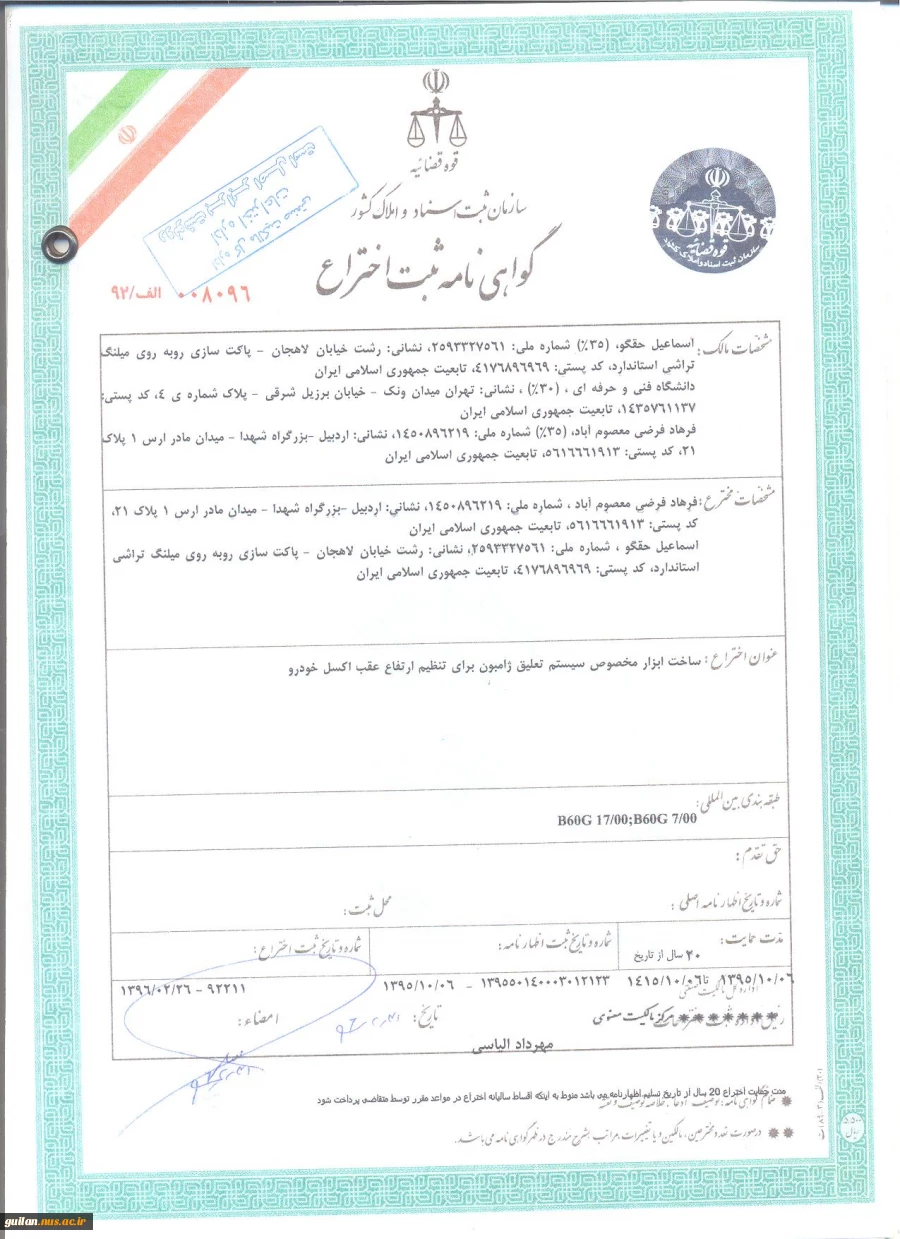 قوه قضائیه
سازمان ثبت اسناد و املاک کشور
گواهی نامه ثبت اختراع
اداره کل مالکیت صنعتی
اداره اختراعات
الف/۹۲ ۰۰۸۰۹۶
قوه قضائیه
سازمان ثبت اسناد و املاک کشور
مشخصات مالک: اسماعیل حقگو، (۳۵٪) شماره ملی: ۲۵۹۳۳۲۷۵۶۱، نشانی: رشت خیابان لاهجان - پاکت سازی روبه روی میلنگ
تراشی استاندارد، کد پستی: ۴۱۷۶۸۹۶۹۶۹، تابعیت جمهوری اسلامی ایران
دانشگاه فنی و حرفه ای ، (۳۰٪) ، نشانی: تهران میدان ونک - خیابان برزیل شرقی - پلاک شماره ی ۴، کد پستی:
۱۴۳۵۷۶۱۱۳۷، تابعیت جمهوری اسلامی ایران
فرهاد فرضی معصوم آباد، (۳۵٪) شماره ملی: ۱۴۵۰۸۹۶۲۱۹، نشانی: اردبیل -بزرگراه شهدا - میدان مادر ارس ۱ پلاک
۲۱، کد پستی: ۵۶۱۶۶۶۱۹۱۳، تابعیت جمهوری اسلامی ایران
مشخصات مخترع: فرهاد فرضی معصوم آباد ، شماره ملی: ۱۴۵۰۸۹۶۲۱۹، نشانی: اردبیل -بزرگراه شهدا - میدان مادر ارس ۱ پلاک ۲۱،
کد پستی: ۵۶۱۶۶۶۱۹۱۳، تابعیت جمهوری اسلامی ایران
اسماعیل حقگو ، شماره ملی: ۲۵۹۳۳۲۷۵۶۱، نشانی: رشت خیابان لاهجان - پاکت سازی روبه روی میلنگ تراشی
استاندارد، کد پستی: ۴۱۷۶۸۹۶۹۶۹، تابعیت جمهوری اسلامی ایران
عنوان اختراع: ساخت ابزار مخصوص سیستم تعلیق ژامبون برای تنظیم ارتفاع عقب اکسل خودرو
طبقه بندی بین المللی:
B60G 17/00;B60G 7/00
حق تقدم:
شماره و تاریخ اظهارنامه اصلی: محل ثبت:
مدت حمایت: شماره و تاریخ ثبت اظهارنامه: شماره و تاریخ ثبت اختراع:
۲۰ سال از تاریخ
۱۳۹۵/۱۰/۰۶ تا ۱۴۱۵/۱۰/۰۶ ۱۳۹۵۵۰۱۴۰۰۰۳۰۱۲۱۲۳ - ۱۳۹۵/۱۰/۰۶ ۹۲۲۱۱ - ۱۳۹۶/۰۲/۲۶
اداره کل مالکیت صنعتی
مرکز مالکیت معنوی تاریخ: امضاء:
مهرداد الیاسی
مدت حمایت اختراع 20 سال از تاریخ تسلیم اظهارنامه می باشد منوط به اینکه اقساط سالیانه اختراع در مواعد مقرر توسط متقاضی پرداخت شود
درصورت تعدد مخترعین، مالکین و یا تغییرات، مراتب بشرح مندرج در ظهر گواهی نامه می باشد.
۵۵۰۰ ریال
guilan.nus.ac.ir